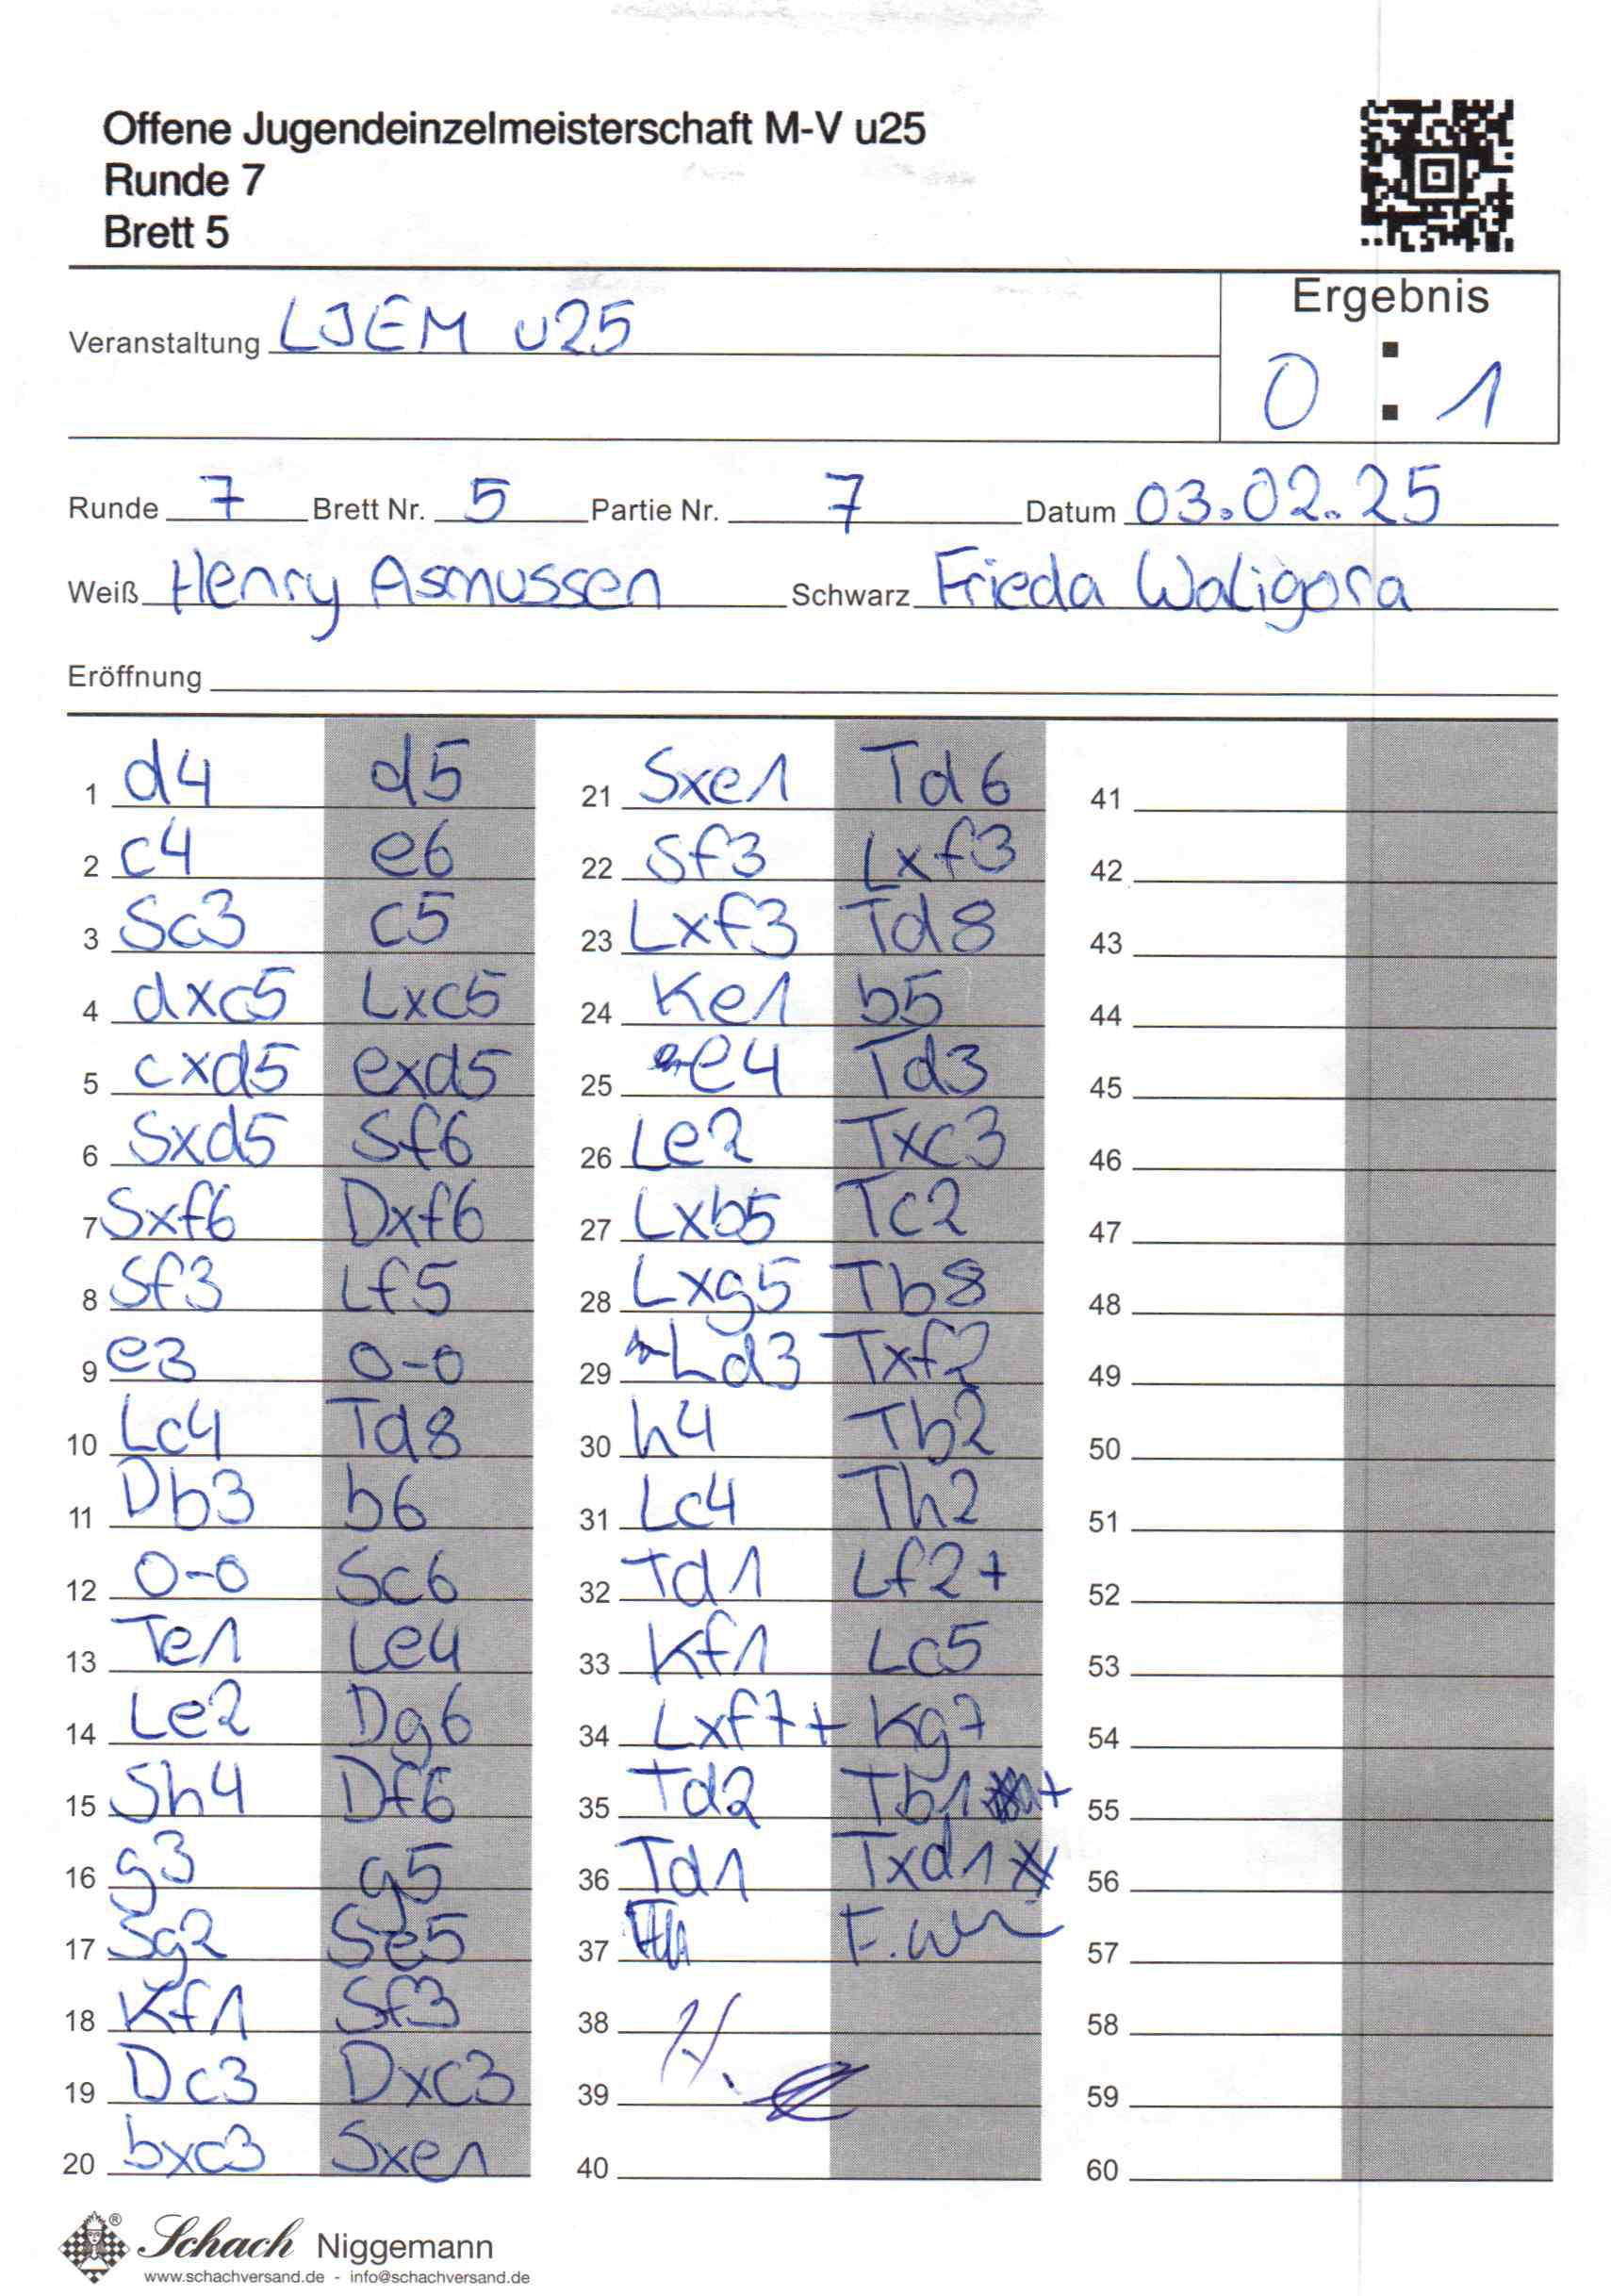 Offene Jugendeinzelmeisterschaft M-V u25
Runde 7
Brett 5
Veranstaltung LJEM u25
Ergebnis
0 : 1
Runde 7 Brett Nr. 5 Partie Nr. 7 Datum 03.02.25
Weiß Henry Asmussen Schwarz Frieda Waligora
Eröffnung
1 d4 d5
2 c4 e6
3 Sc3 c5
4 dxc5 Lxc5
5 cxd5 exd5
6 Sxd5 Sf6
7 Sxf6 Dxf6
8 Sf3 Lf5
9 e3 0-0
10 Lc4 Td8
11 Db3 b6
12 0-0 Sc6
13 Te1 Le4
14 Le2 Dg6
15 Sh4 Df6
16 g3 g5
17 Sg2 Se5
18 Kf1 Sf3
19 Dc3 Dxc3
20 bxc3 Sxe1
21 Sxe1 Td6
22 Sf3 Lxf3
23 Lxf3 Td8
24 Ke1 b5
25 e4 Td3
26 Le2 Txc3
27 Lxb5 Tc2
28 Lxg5 Tb8
29 Ld3 Txf2
30 h4 Tb2
31 Lc4 Th2
32 Td1 Lf2+
33 Kf1 Lc5
34 Lxf7+ Kg7
35 Td2 Tb1+
36 Td1 Txd1
37
38
39
40
41
42
43
44
45
46
47
48
49
50
51
52
53
54
55
56
57
58
59
60
Schach Niggemann
www.schachversand.de - info@schachversand.de